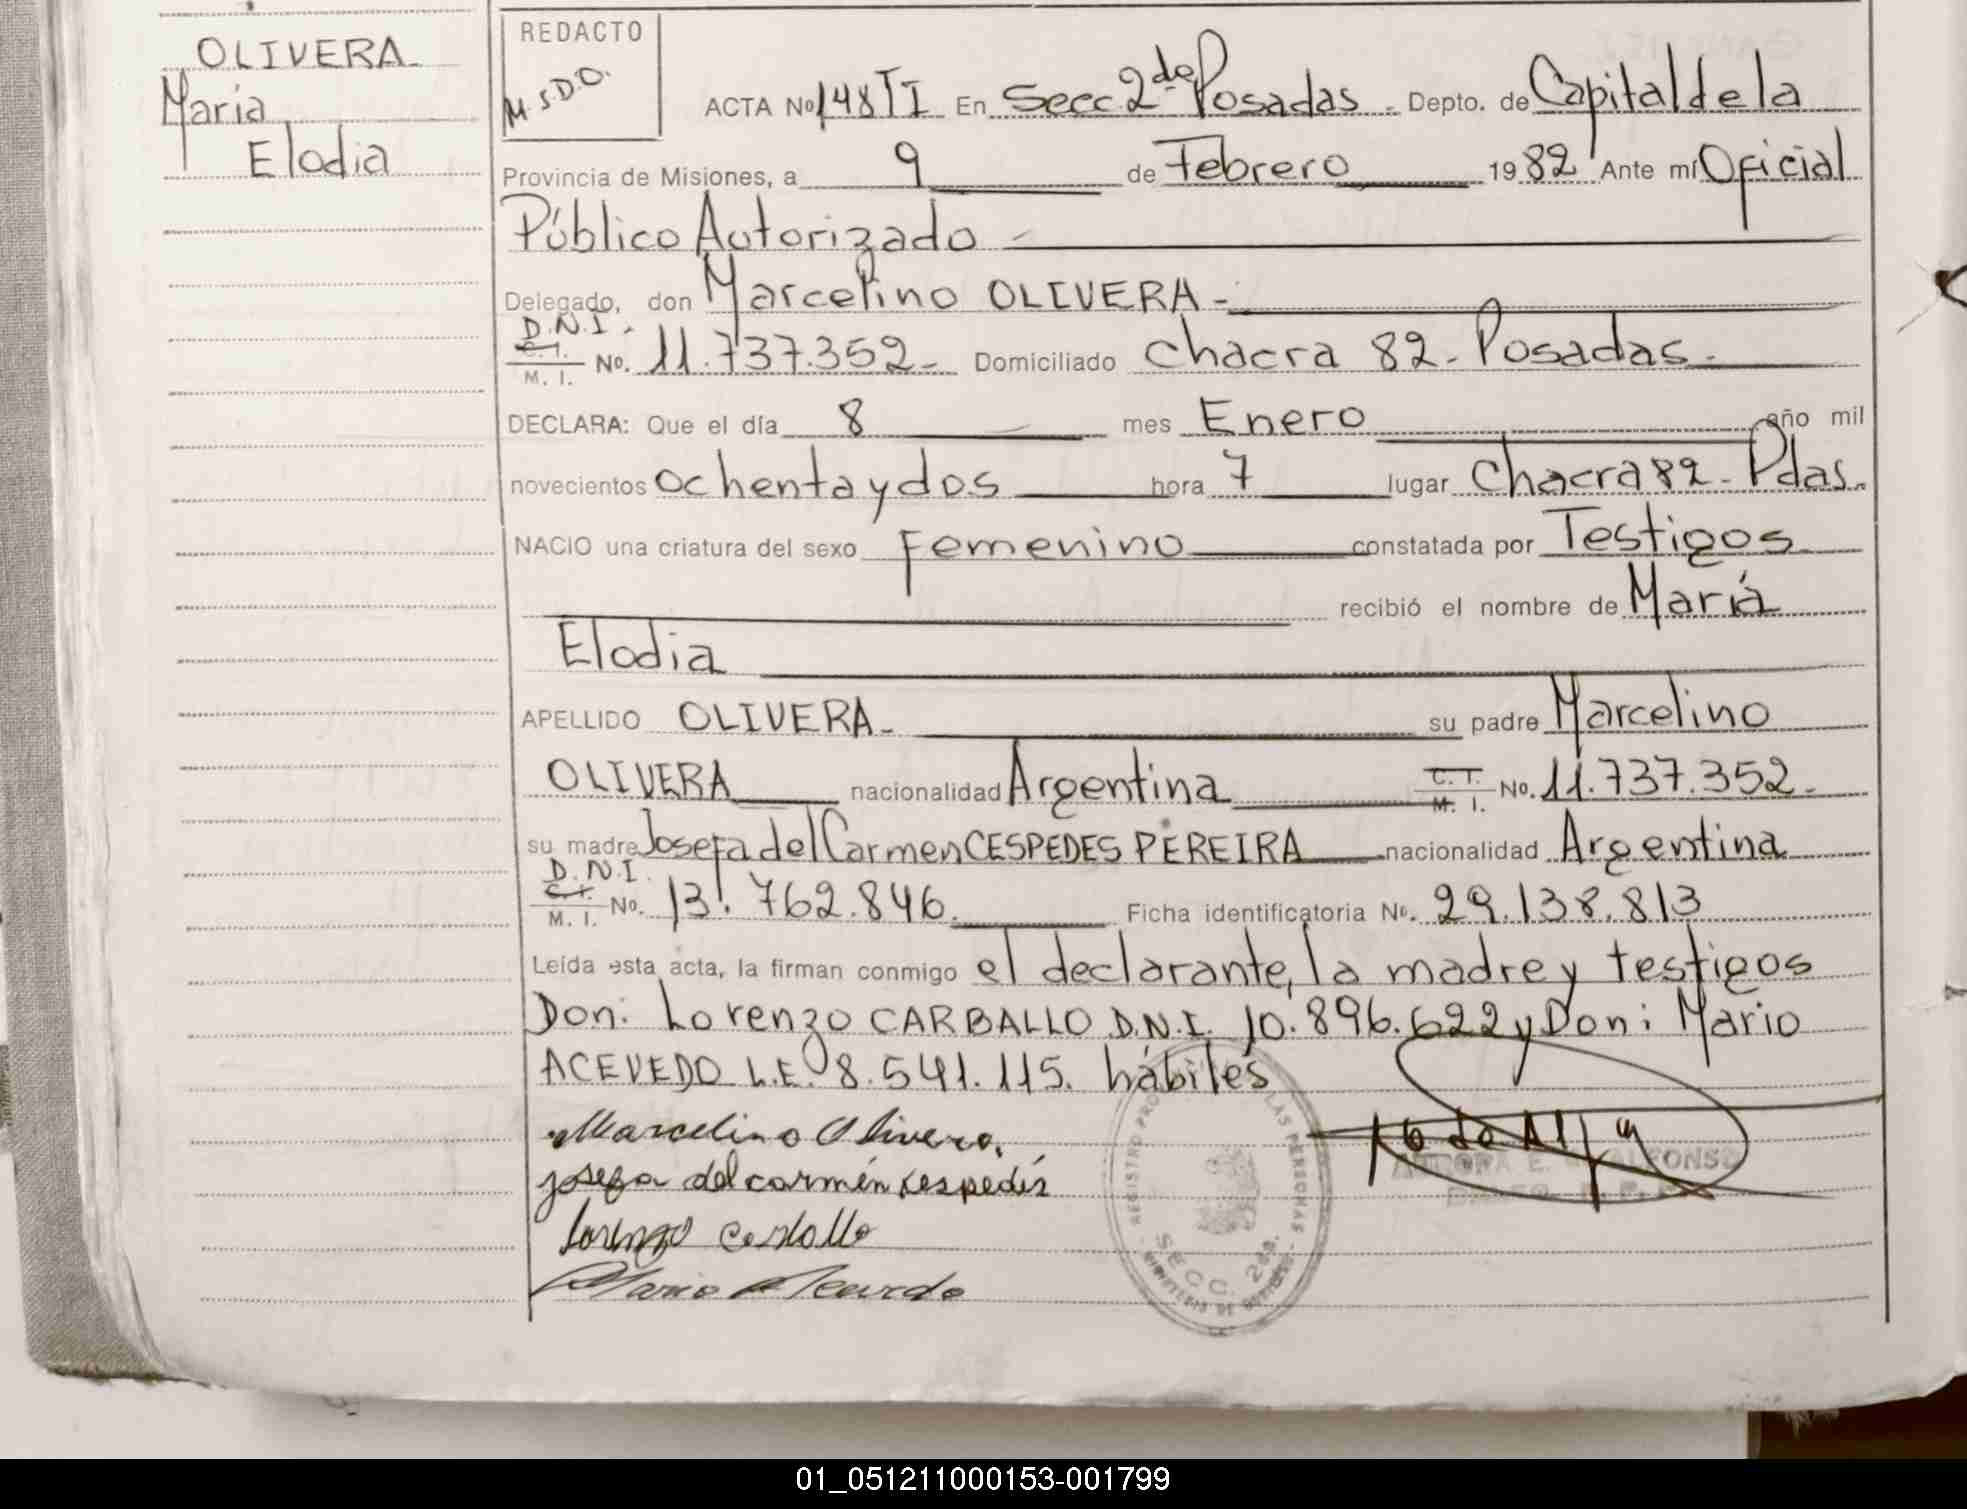 OLIVERA
María
Elodia
REDACTO
M.S.D.O.
ACTA No 148 TI En Secc. 2da Posadas - Depto. de Capital de la
Provincia de Misiones, a 9 de Febrero 1982 Ante mí Oficial
Público Autorizado
Delegado, don Marcelino OLIVERA -
D.N.I.
C.I.
M. I. No. 11.737.352- Domiciliado Chacra 82- Posadas-
DECLARA: Que el día 8 mes Enero año mil
novecientos ochenta y dos hora 7 lugar Chacra 82- Pdas.
NACIO una criatura del sexo Femenino constatada por Testigos
recibió el nombre de María
Elodia
APELLIDO OLIVERA- su padre Marcelino
OLIVERA nacionalidad Argentina C.I. M. I. No. 11.737.352-
su madre Josefa del Carmen CESPEDES PEREIRA nacionalidad Argentina
D.N.I.
C.I.
M. I. No. 13.762.846. Ficha identificatoria No. 29.138.813
Leída esta acta, la firman conmigo el declarante, la madre y testigos
Don: Lorenzo CARBALLO D.N.I. 10.896.622 y Don: Mario
ACEVEDO L.E. 8.541.115. hábiles
Marcelino Olivera.
Josefa del carmén
Lorenzo
Mario
SECC. 2da.
01_051211000153-001799